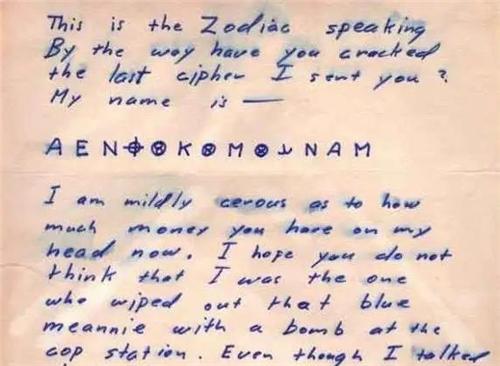 This is the Zodiac speaking
By the way have you cracked
the last cipher I sent you ?
My name is —
A E N ⌖ ⊗ K ⊗ M ⊗ ⅄ N A M
I am mildly cerous as to how
much money you have on my
head now. I hope you do not
think that I was the one
who wiped out that blue
meannie with a bomb at the
cop station. Even though I talked